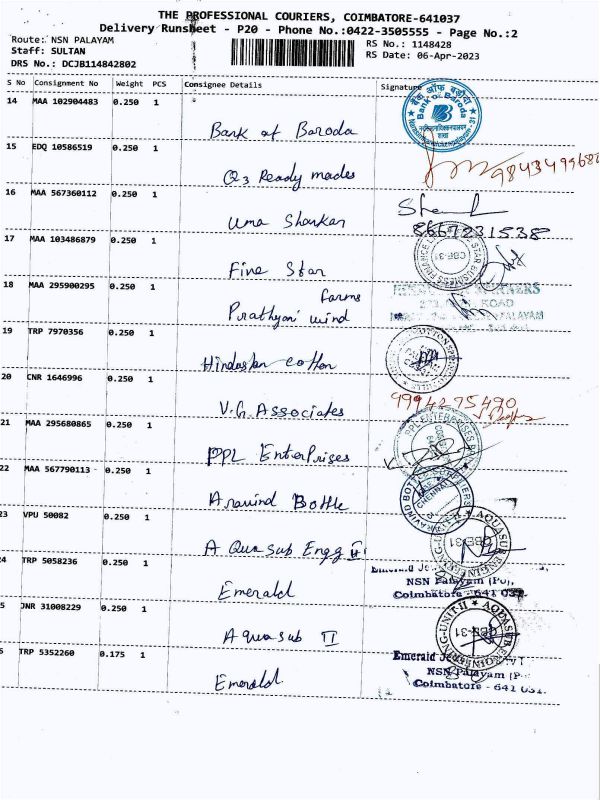 THE PROFESSIONAL COURIERS, COIMBATORE-641037
Delivery Runsheet - P20 - Phone No.:0422-3505555 - Page No.:2
Route: NSN PALAYAM
Staff: SULTAN
DRS No.: DCJB114842802
RS No.: 1148428
RS Date: 06-Apr-2023
S No Consignment No Weight PCS Consignee Details Signature
14 MAA 102904483 0.250 1
Bank of Baroda
बैंक ऑफ़ बड़ौदा
Bank of Baroda
15 EDQ 10586519 0.250 1
Q3 Ready mades
16 MAA 567360112 0.250 1
Uma Shankar
8667231538
17 MAA 103486879 0.250 1
Five Star
CBE-31
18 MAA 295900295 0.250 1
farms
Prathyan wind
ROAD
PALAYAM
19 TRP 7970356 0.250 1
Hindustan cotton
20 CNR 1646996 0.250 1
V.G. Associates
9994275490
21 MAA 295680865 0.250 1
PPL Enterprises
PPL ENTERPRISES
22 MAA 567790113 0.250 1
Aravind Bottle
ARAVIND BOTTLE SUPPLIERS
23 VPU 50082 0.250 1
A Qua sub Engg II
CBE-31
24 TRP 5058236 0.250 1
Emerald
NSN Palayam (Po),
Coimbatore - 641 031.
5 JNR 31008229 0.250 1
Aquasub II
AQUASUB ENGINEERING-UNIT-II
CBE-31
6 TRP 5352260 0.175 1
Emerald
Emerald
NSN Palayam (P
Coimbatore - 641 031.